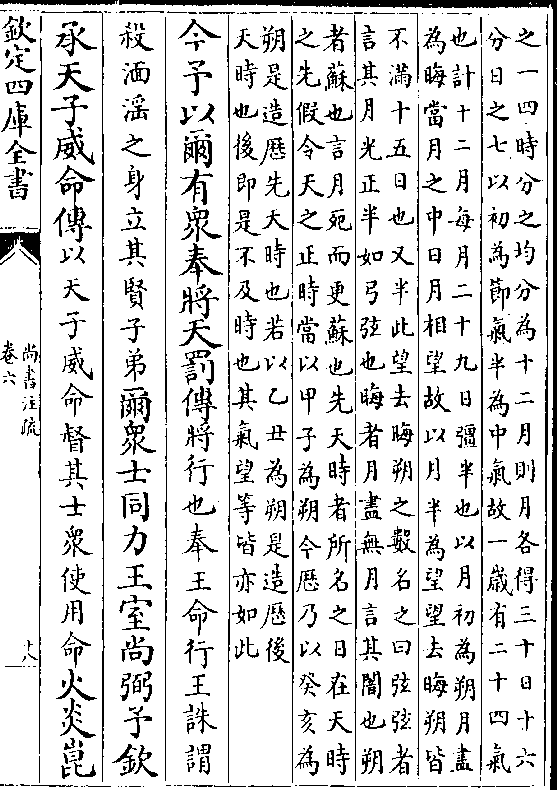 之一四時分之均分為十二月則月各得三十日十六
分日之七以初為節氣半為中氣故一歲有二十四氣
也計十二月每月二十九日彊半也以月初為朔月盡
為晦當月之中日月相望故以月半為望望去晦朔皆
不滿十五日也又半此望去晦朔之數名之曰弦弦者
言其月光正半如弓弦也晦者月盡無月言其闇也朔
者蘇也言月死而更蘇也先天時者所名之日在天時
之先假令天之正時當以甲子為朔今歷乃以癸亥為
朔是造歷先天時也若以乙丑為朔是造歷後
天時也後即是不及時也其氣望等皆亦如此
今予以爾有眾奉將天罰傳將行也奉王命行王誅謂
殺湎淫之身立其賢子弟爾眾士同力王室尚弼予欽
承天子威命傳以天子威命督其士眾使用命火炎崑
欽定四庫全書
尚書注疏
卷六
十八